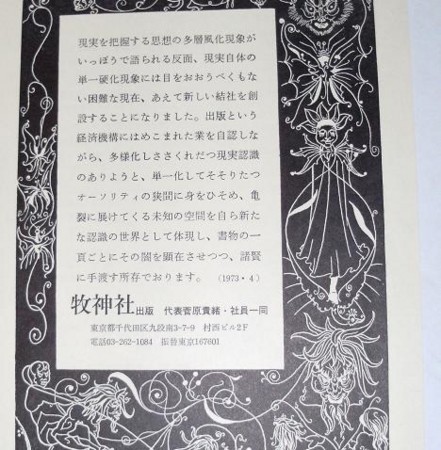 現実を把握する思想の多層風化現象が
いっぽうで語られる反面、現実自体の
単一硬化現象には目をおおうべくもな
い困難な現在、あえて新しい結社を創
設することになりました。出版という
経済機構にはめこまれた業を自認しな
がら、多様化しささくれだつ現実認識
のありようと、単一化してそそりたつ
オーソリティの狭間に身をひそめ、亀
裂に展けてくる未知の空間を自ら新た
な認識の世界として体現し、書物の一
頁ごとにその闇を顕在させつつ、諸賢
に手渡す所存でおります。（1973・4）
牧神社出版 代表菅原貴緒・社員一同
東京都千代田区九段南3-7-9 村西ビル2F
電話03-262-1084 振替東京167601